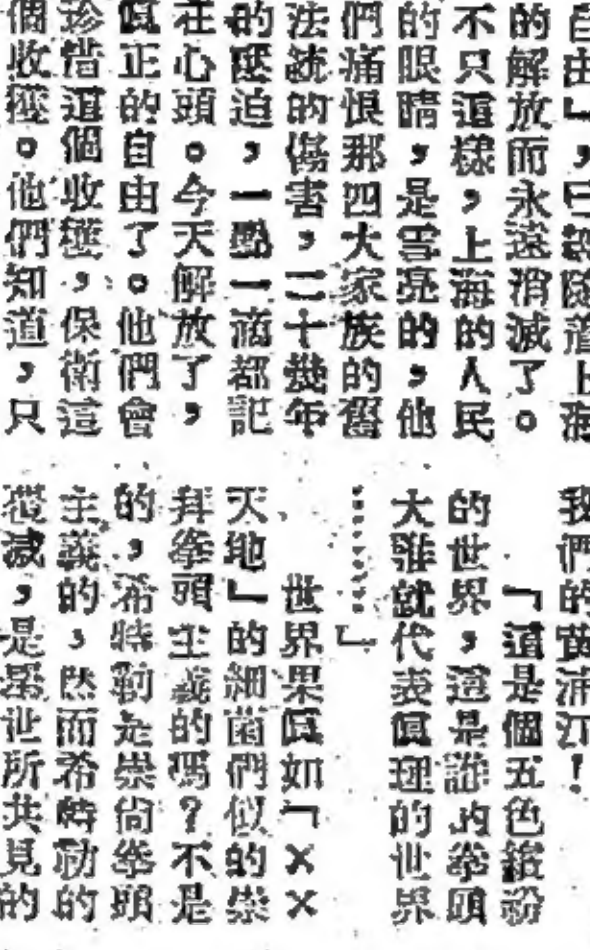 自由」，已經隨着上海
的解放而永遠消滅了。
不只這樣，上海的人民
的眼睛，是雪亮的，他
們痛恨那四大家族的舊
法統的傷害，二十幾年
的壓迫，一點一滴都記
在心頭。今天解放了，
眞正的自由了。他們會
珍惜這個收穫，保衛這
個收穫。他們知道，只
我們的黃浦江！
「這是個五色繽紛
的世界，這是誰的拳頭
大誰就代表眞理的世界
……」
世界果眞如「××
天地」的細菌們似的崇
拜拳頭主義的嗎？不是
的，希特勒是崇尙拳頭
主義的，然而希特勒的
滅，是舉世所共見的